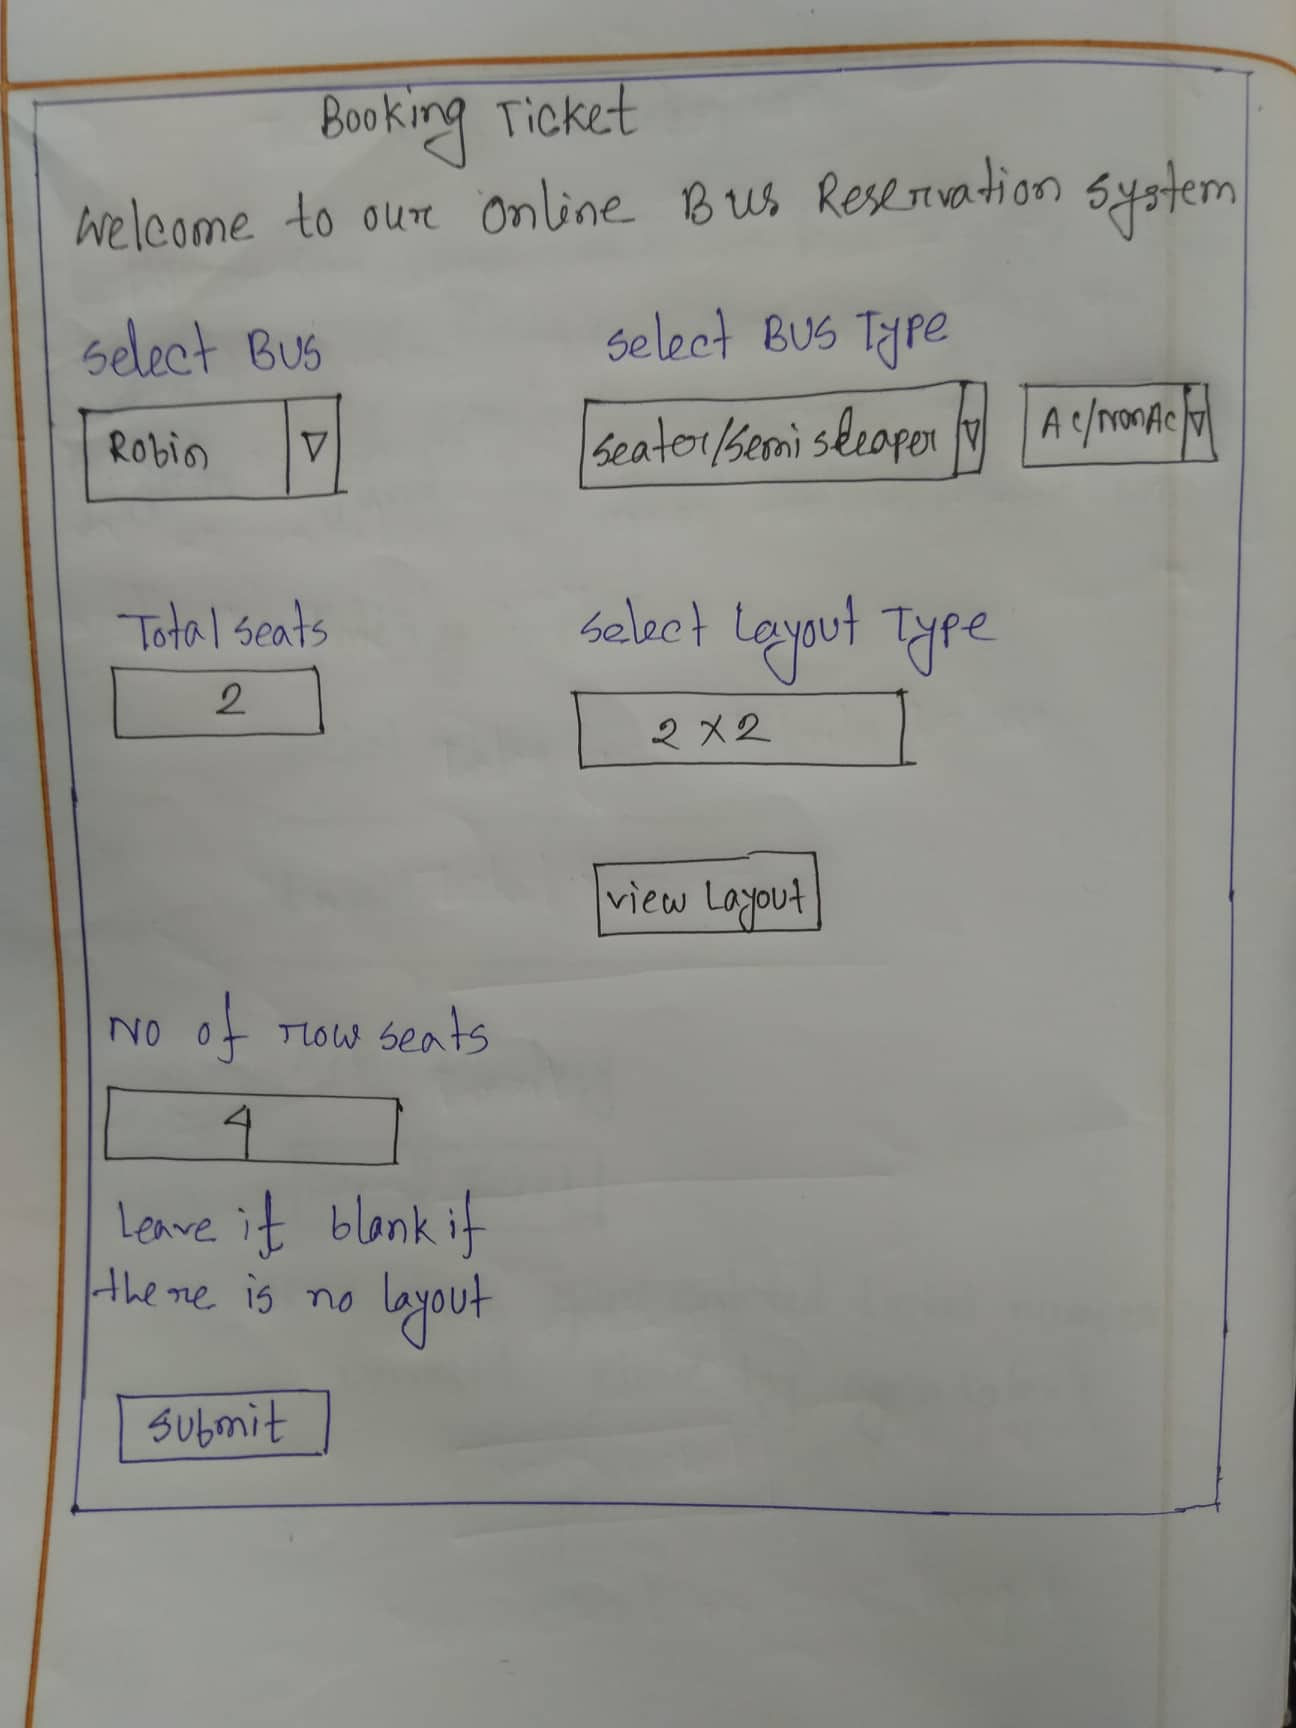 Booking Ticket
Welcome to our Online Bus Reservation System
Select BUS
Select BUS Type
Robin
Seater/Semi sleaper
AC/NonAc
Total seats
Select Layout Type
2
2 x 2
View Layout
No of row seats
4
Leave it blank if
there is no layout
Submit